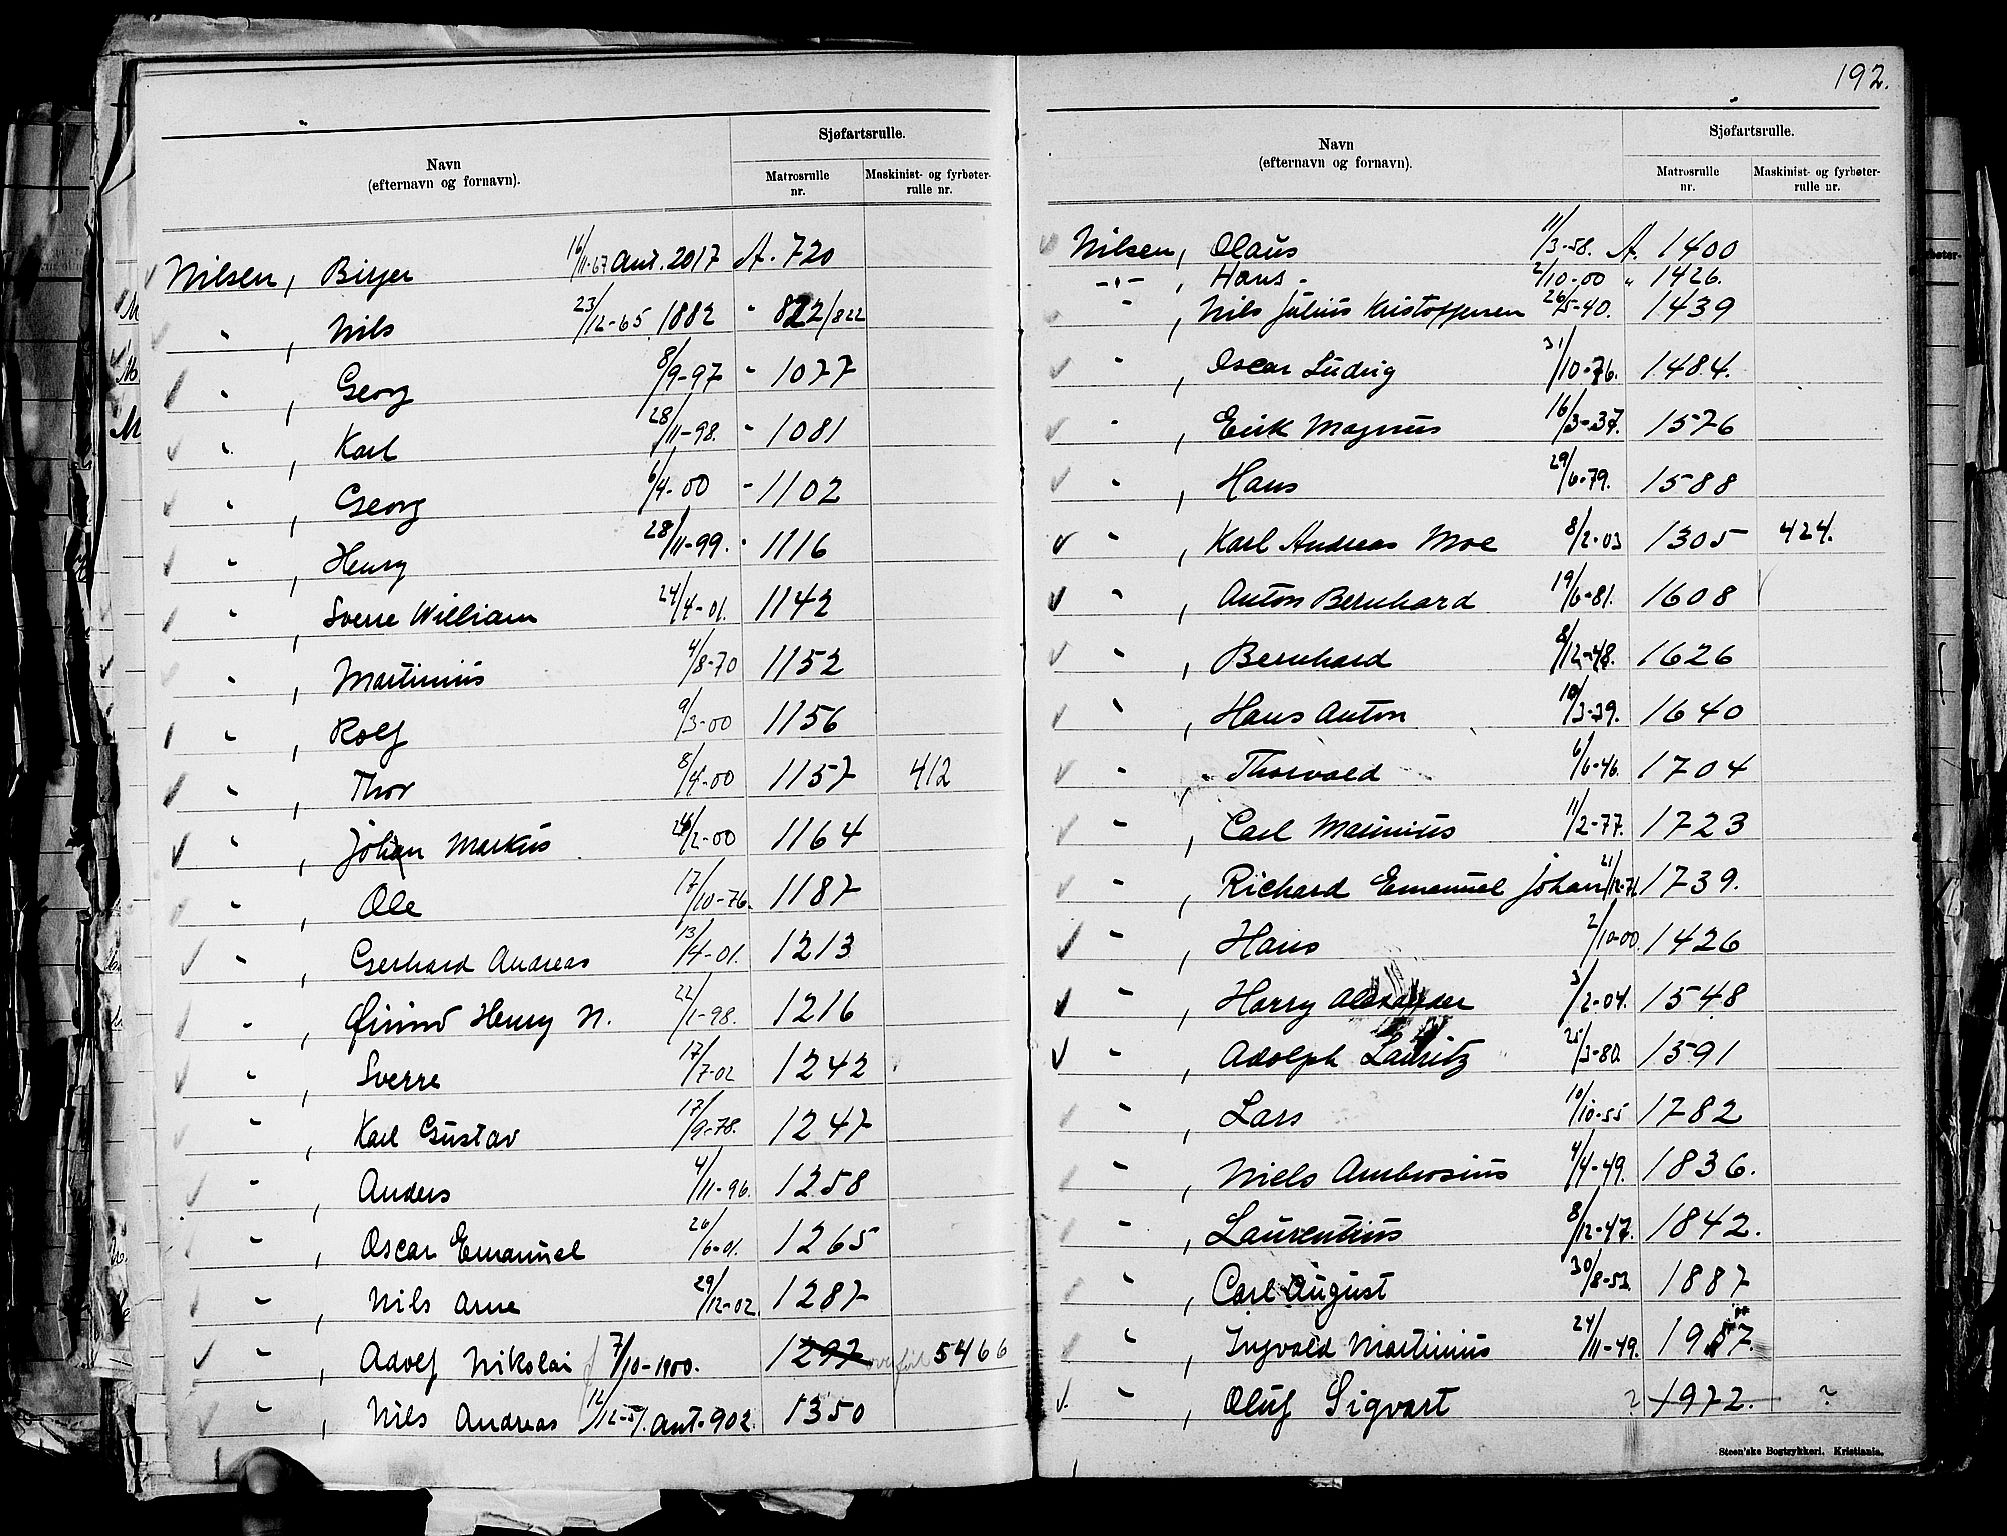 Navn
(efternavn og fornavn).
Sjøfartsrulle.
Matrosrulle nr.
Maskinist- og fyrbøter-rulle nr.
Nilsen, Birger 16/11-67 Ant. 2017 A. 720
" , Nils 23/12-65 1882 " 822/822
" , Georg 8/9-97 " 1077
" , Karl 28/11-98. " 1081
" , Georg 6/4-00 " 1102
" , Henry 28/11-99. " 1116
" , Sverre William 24/4-01. 1142
" , Martinius 4/8-70 1152
" , Rolf 9/3-00 1156
" , Thor 8/4-00 1157 412
" , Johan Markus 2-00 1164
" , Ole 17/10-76. 1187
" , Gerhard Andreas 13/4-01. 1213
" , Øivind Henry N. 22/1-98. 1216
" , Sverre 17/7-02 1242
" , Karl Gustav 17/9-78. 1247
" , Anders 4/11-96. 1258
" , Oscar Emanuel 26/6-01. 1265
" , Nils Arne 29/12-02. 1287
" , Adolf Nikolai f 7/10-1900. 1297 5466
" , Nils Andreas 12/12-51. Ant. 902. 1350
192.
Navn
(efternavn og fornavn).
Sjøfartsrulle.
Matrosrulle nr.
Maskinist- og fyrbøter-rulle nr.
Nilsen, Olaus 11/3-58. A. 1400
-"- , Hans - 2/10-00 " 1426.
" , Nils Julius Kristoffersen 26/5-40. 1439
" , Oscar Ludvig 31/10-76. 1484.
" , Erik Magnus 16/3-37. 1576
" , Hans 29/6-79. 1588
" , Karl Andreas Moe 8/2-03 1305 424.
" , Anton Bernhard 19/6-81. 1608
" , Bernhard 8/12-48. 1626
" , Hans Anton 3-39. 1640
" , Thorvald 6/6-46. 1704
" , Carl Marinius 11/2-77. 1723
" , Richard Emanuel Johan 21/12-71 1739.
" , Hans 2/10-00. 1426
" , Harry Alexander 3/2-04. 1548
" , Adolph Lauritz 25/3-80. 1591
" , Lars 10/10-55 1782
" , Niels Ambrosius 4/4-49. 1836.
" , Laurentius 8/12-47. 1842.
" , Carl August 30/8-53. 1887
" , Ingvald Martinius 24/11-49.
" , Oluf Sigvart ? 1972. ?
Steen'ske Bogtrykkeri. Kristiania.